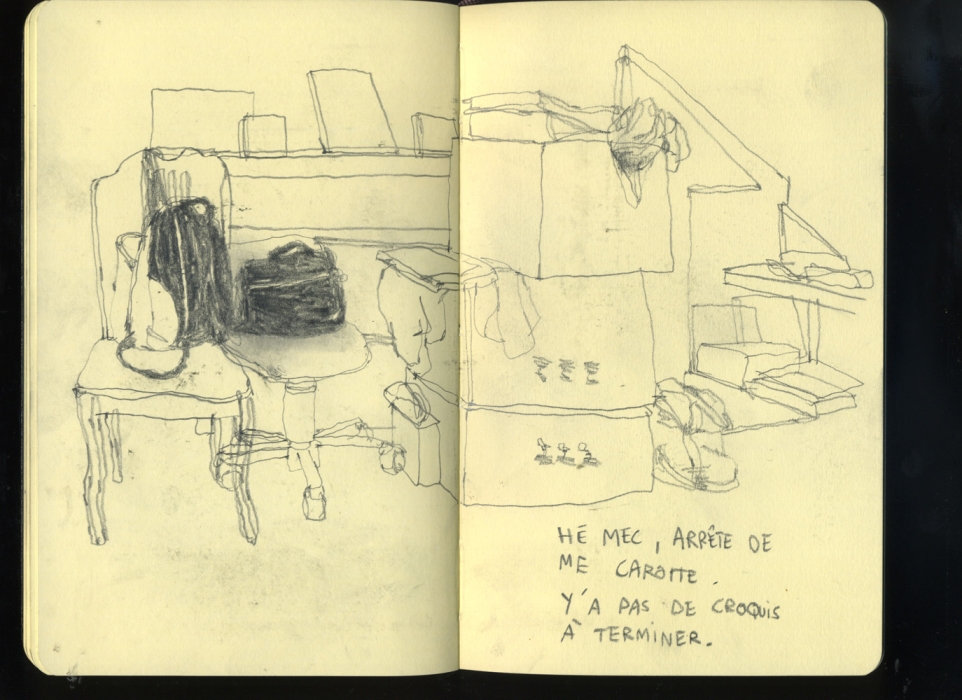 HÉ MEC, ARRÊTE DE
ME CAROTTE.
Y'A PAS DE CROQUIS
À TERMINER.